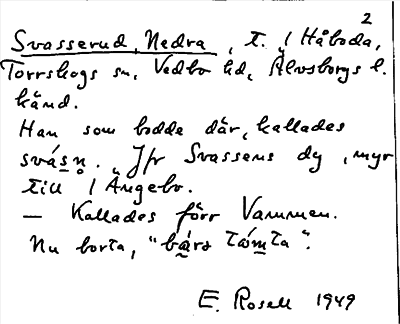 2
Svasserud, Nedra, t. 1 Håboda,
Torrskogs sn, Vedbo hd, Älvsborgs l.
känd.
Han som bodde där, kallades
svásn̥. Jfr Svassens dy, myr
till 1 Ängebo.
– Kallades förr Vammen.
Nu borta, "bára tómta".
E. Rosell 1949